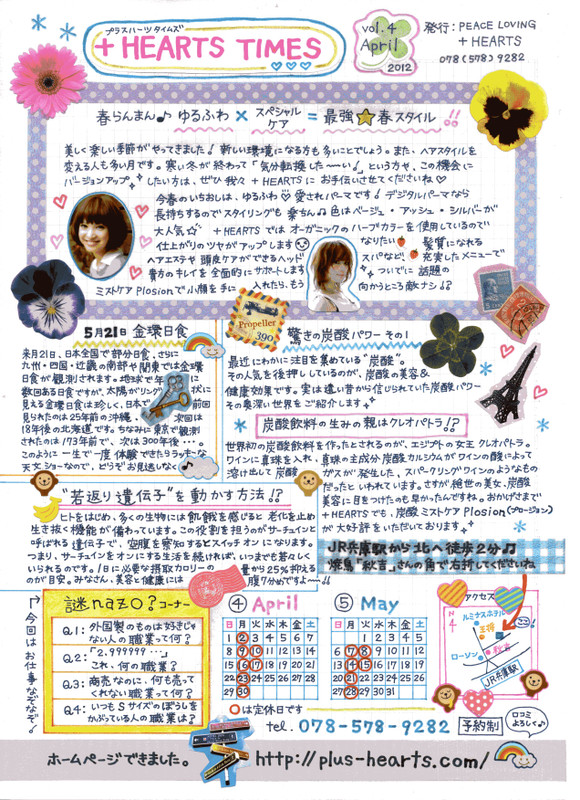 プラスハーツタイムズ
+ HEARTS TIMES
vol.4
April
2012
発行：PEACE LOVING
+ HEARTS
078(578)9282
春らんまん♪ ゆるふわ × スペシャルケア = 最強☆春スタイル!!
美しく楽しい季節がやってきました！新しい環境になる方も多いことでしょう。また、ヘアスタイルを
変える人も多い月です。寒い冬が終わって「気分転換した〜い！」という方や、この機会に
バージョンアップしたい方は、ぜひ我々 +HEARTSに お手伝いさせてくださいね♡
今春のいちおしは、ゆるふわ♡愛されパーマです！デジタルパーマなら
長持ちするのでスタイリングも楽ちん♫色はベージュ・アッシュ・シルバーが
大人気☆ +HEARTSでは オーガニックのハーブカラーを使用しているので
仕上がりのツヤがアップします
なりたい髪質になれる
ヘアエステや頭皮ケアができるヘッド
スパなど、充実したメニューで
貴方のキレイを全面的にサポートします
ついでに話題の
ミストケアPlosionで小顔を手に入れたら、もう
向かうところ敵ナシ!?
5月21日 金環日食
来月21日、日本全国で部分日食、さらに
九州・四国・近畿の南部や関東では金環
日食が観測されます。地球で年に
数回ある日食ですが、太陽がリング状に
見える金環日食は珍しく、日本で前回
見られたのは25年前の沖縄。次回は
18年後の北海道です。ちなみに東京で観測
されたのは173年前で、次は300年後・・・。
このように一生で一度体験できたらラッキーな
天文ショーなので、どうぞお見逃しなく
Propeller
390
驚きの炭酸パワー その1
最近にわかに注目を集めている“炭酸”。
その人気を後押ししているのが、炭酸の美容&
健康効果です。実は遠い昔から信じられていた炭酸パワー
その奥深い世界をご紹介します
炭酸飲料の生みの親はクレオパトラ!?
世界初の炭酸飲料を作ったとされるのが、エジプトの女王クレオパトラ。
ワインに真珠を入れ、真珠の主成分炭酸カルシウムがワインの酸によって
溶け出して炭酸ガスが発生した、スパークリングワインのようなもの
だったといわれています。さすが絶世の美女、炭酸
美容に目をつけたのも早かったんですね。おかげさまで
+HEARTSでも、炭酸ミストケアPlosion(プロージョン)
が大好評をいただいております
“若返り遺伝子”を動かす方法!?
ヒトをはじめ、多くの生物には飢餓を感じると老化を止め
生き抜く機能が備わっています。この役割を担うのがサーチュインと
呼ばれる遺伝子で、空腹を察知するとスイッチオンになります。
つまり、サーチュインをオンにする生活を続ければ、いつまでも若々しく
いられるのです。1日に必要な摂取カロリーの量から25%抑える
のが目安。みなさん、美容と健康には腹7分めですよ〜!!
JR兵庫駅から北へ徒歩2分♫
焼鳥「秋吉」さんの角で右折してくださいね
今回はお仕事なぞなぞ。
謎nazo?コーナー
Q.1：外国製のものは好きじゃない人の職業って何？
Q.2：「2.999999…」これ、何の職業？
Q.3：商売なのに、何も売ってくれない職業って何？
Q.4：いつもSサイズのぼうしをかぶっている人の職業は？
④ April
日 月 火 水 木 金 土
1 2 3 4 5 6 7
8 9 10 11 12 13 14
15 16 17 18 19 20 21
22 23 24 25 26 27 28
29 30
⑤ May
日 月 火 水 木 金 土
1 2 3 4 5
6 7 8 9 10 11 12
13 14 15 16 17 18 19
20 21 22 23 24 25 26
27 28 29 30 31
○は定休日です
アクセス
N
4
ルミナスホテル
王将
ローソン
秋吉
JR兵庫駅
tel. 078-578-9282
予約制
口コミよろしく♪
ホームページできました。
http://plus-hearts.com/